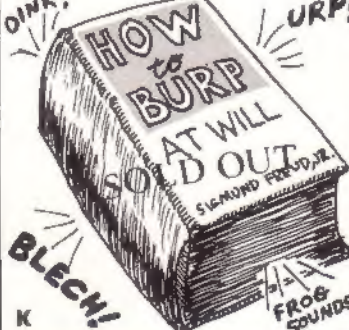 OINK!
URP!
HOW
to
BURP
AT WILL
SOLD OUT
SIGMUND FREUD, JR.
BLECH!
FROG
SOUNDS
K